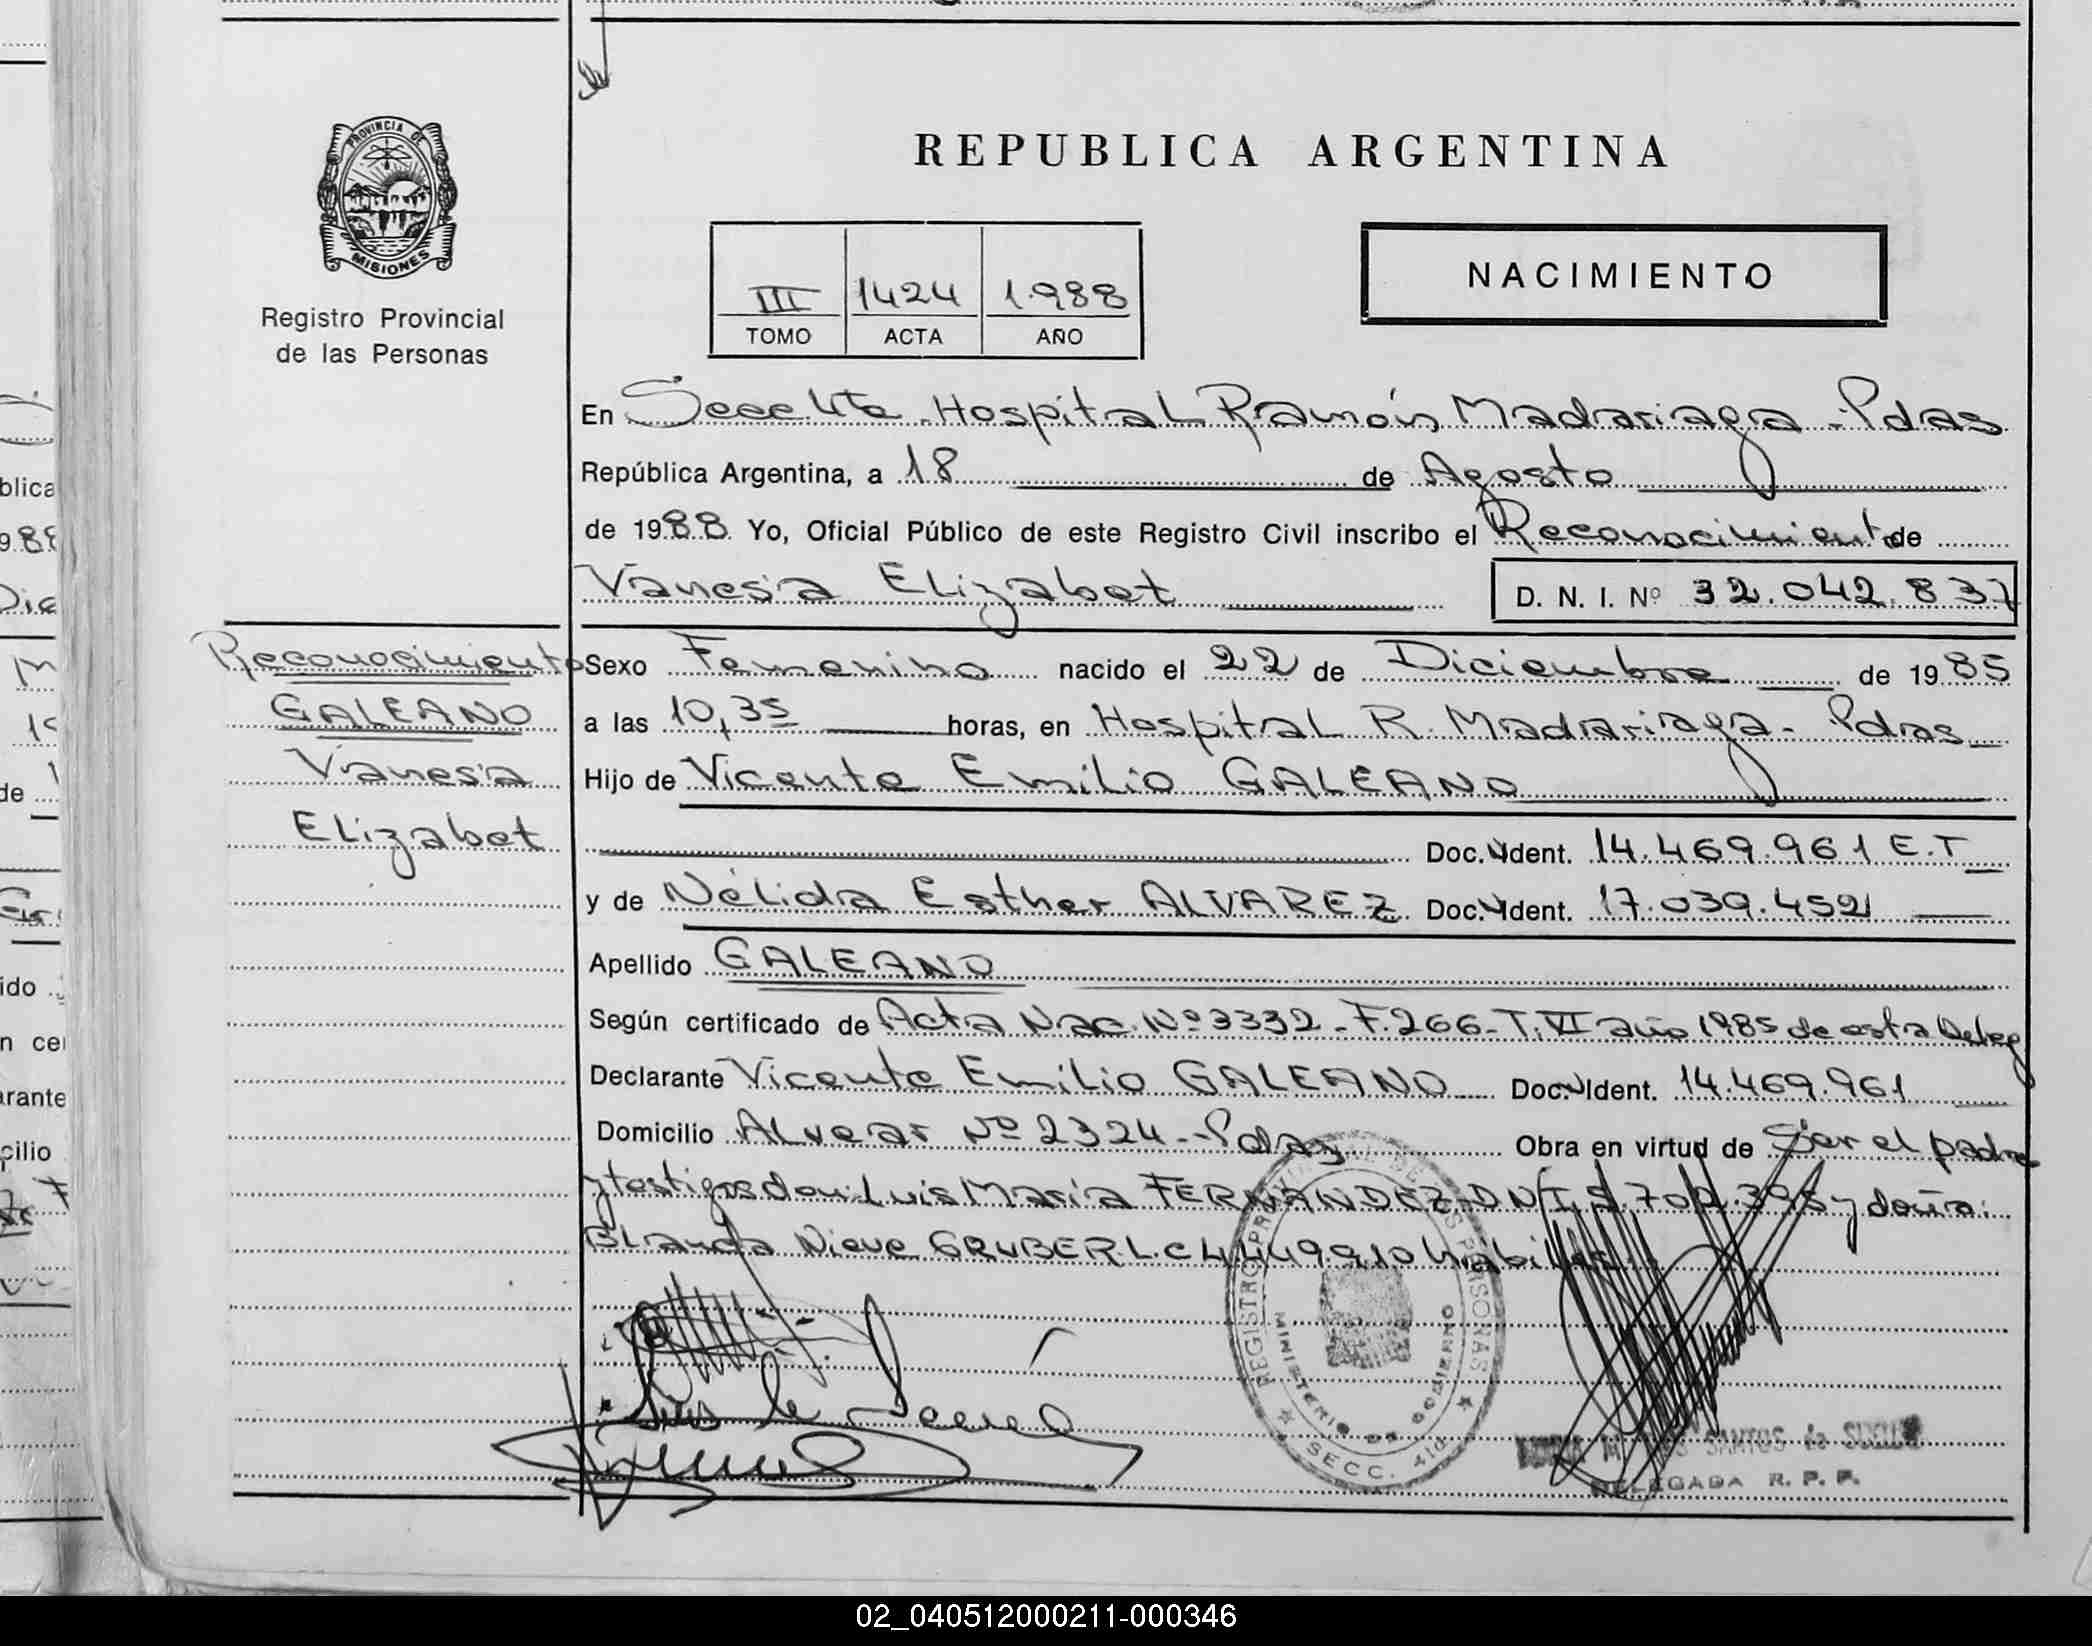 PROVINCIA DE
MISIONES
Registro Provincial
de las Personas
REPUBLICA ARGENTINA
III 1424 1.988
TOMO ACTA AÑO
NACIMIENTO
En Secc 4ta Hospital Ramón Madariaga - Pdas
República Argentina, a 18 de Agosto
de 1988 Yo, Oficial Público de este Registro Civil inscribo el Reconocimiento de
Vanesa Elizabet D. N. I. Nº 32.042.837
Reconocimiento
GALEANO
Vanesa
Elizabet
Sexo Femenino nacido el 22 de Diciembre de 1985
a las 10,35 horas, en Hospital R. Madariaga - Pdas
Hijo de Vicente Emilio GALEANO
Doc. Ident. 14.469.961 E.T
y de Nélida Esther ALVAREZ Doc. Ident. 17.039.452
Apellido GALEANO
Según certificado de Acta Nac. Nº 3332 - F. 266 - T. VI año 1985 de esta Deleg
Declarante Vicente Emilio GALEANO Doc. Ident. 14.469.961
Domicilio Alvear Nº 2324 - Pdas Obra en virtud de Ser el padre
y testigos don: Luis María FERNANDEZ D N I. 5.702.395 y doña:
Blanca Nieve GRUBER L.C 4.449.910 hábiles.
REGISTRO PROVINCIAL DE LAS PERSONAS
MINISTERIO DE GOBIERNO
SECC. 4ta
SANTOS de
DELEGADA R. P. P.
blica
de
ido
n cer
arante
cilio
02_040512000211-000346